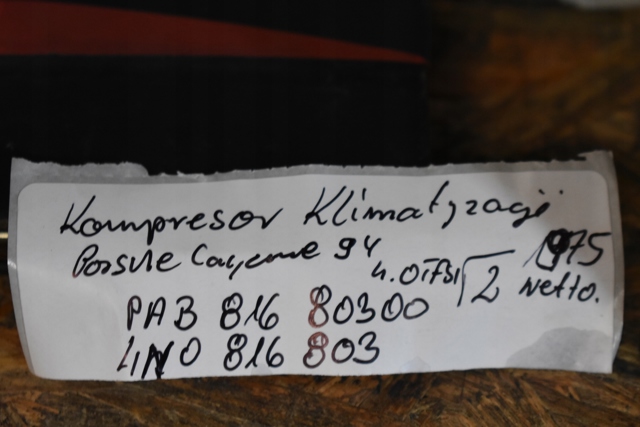 Kompresor Klimatyzacji
Porsche Cayenne 9Y
4.0TFSI √2 1975 netto.
PAB 816 80300
4N0 816 803